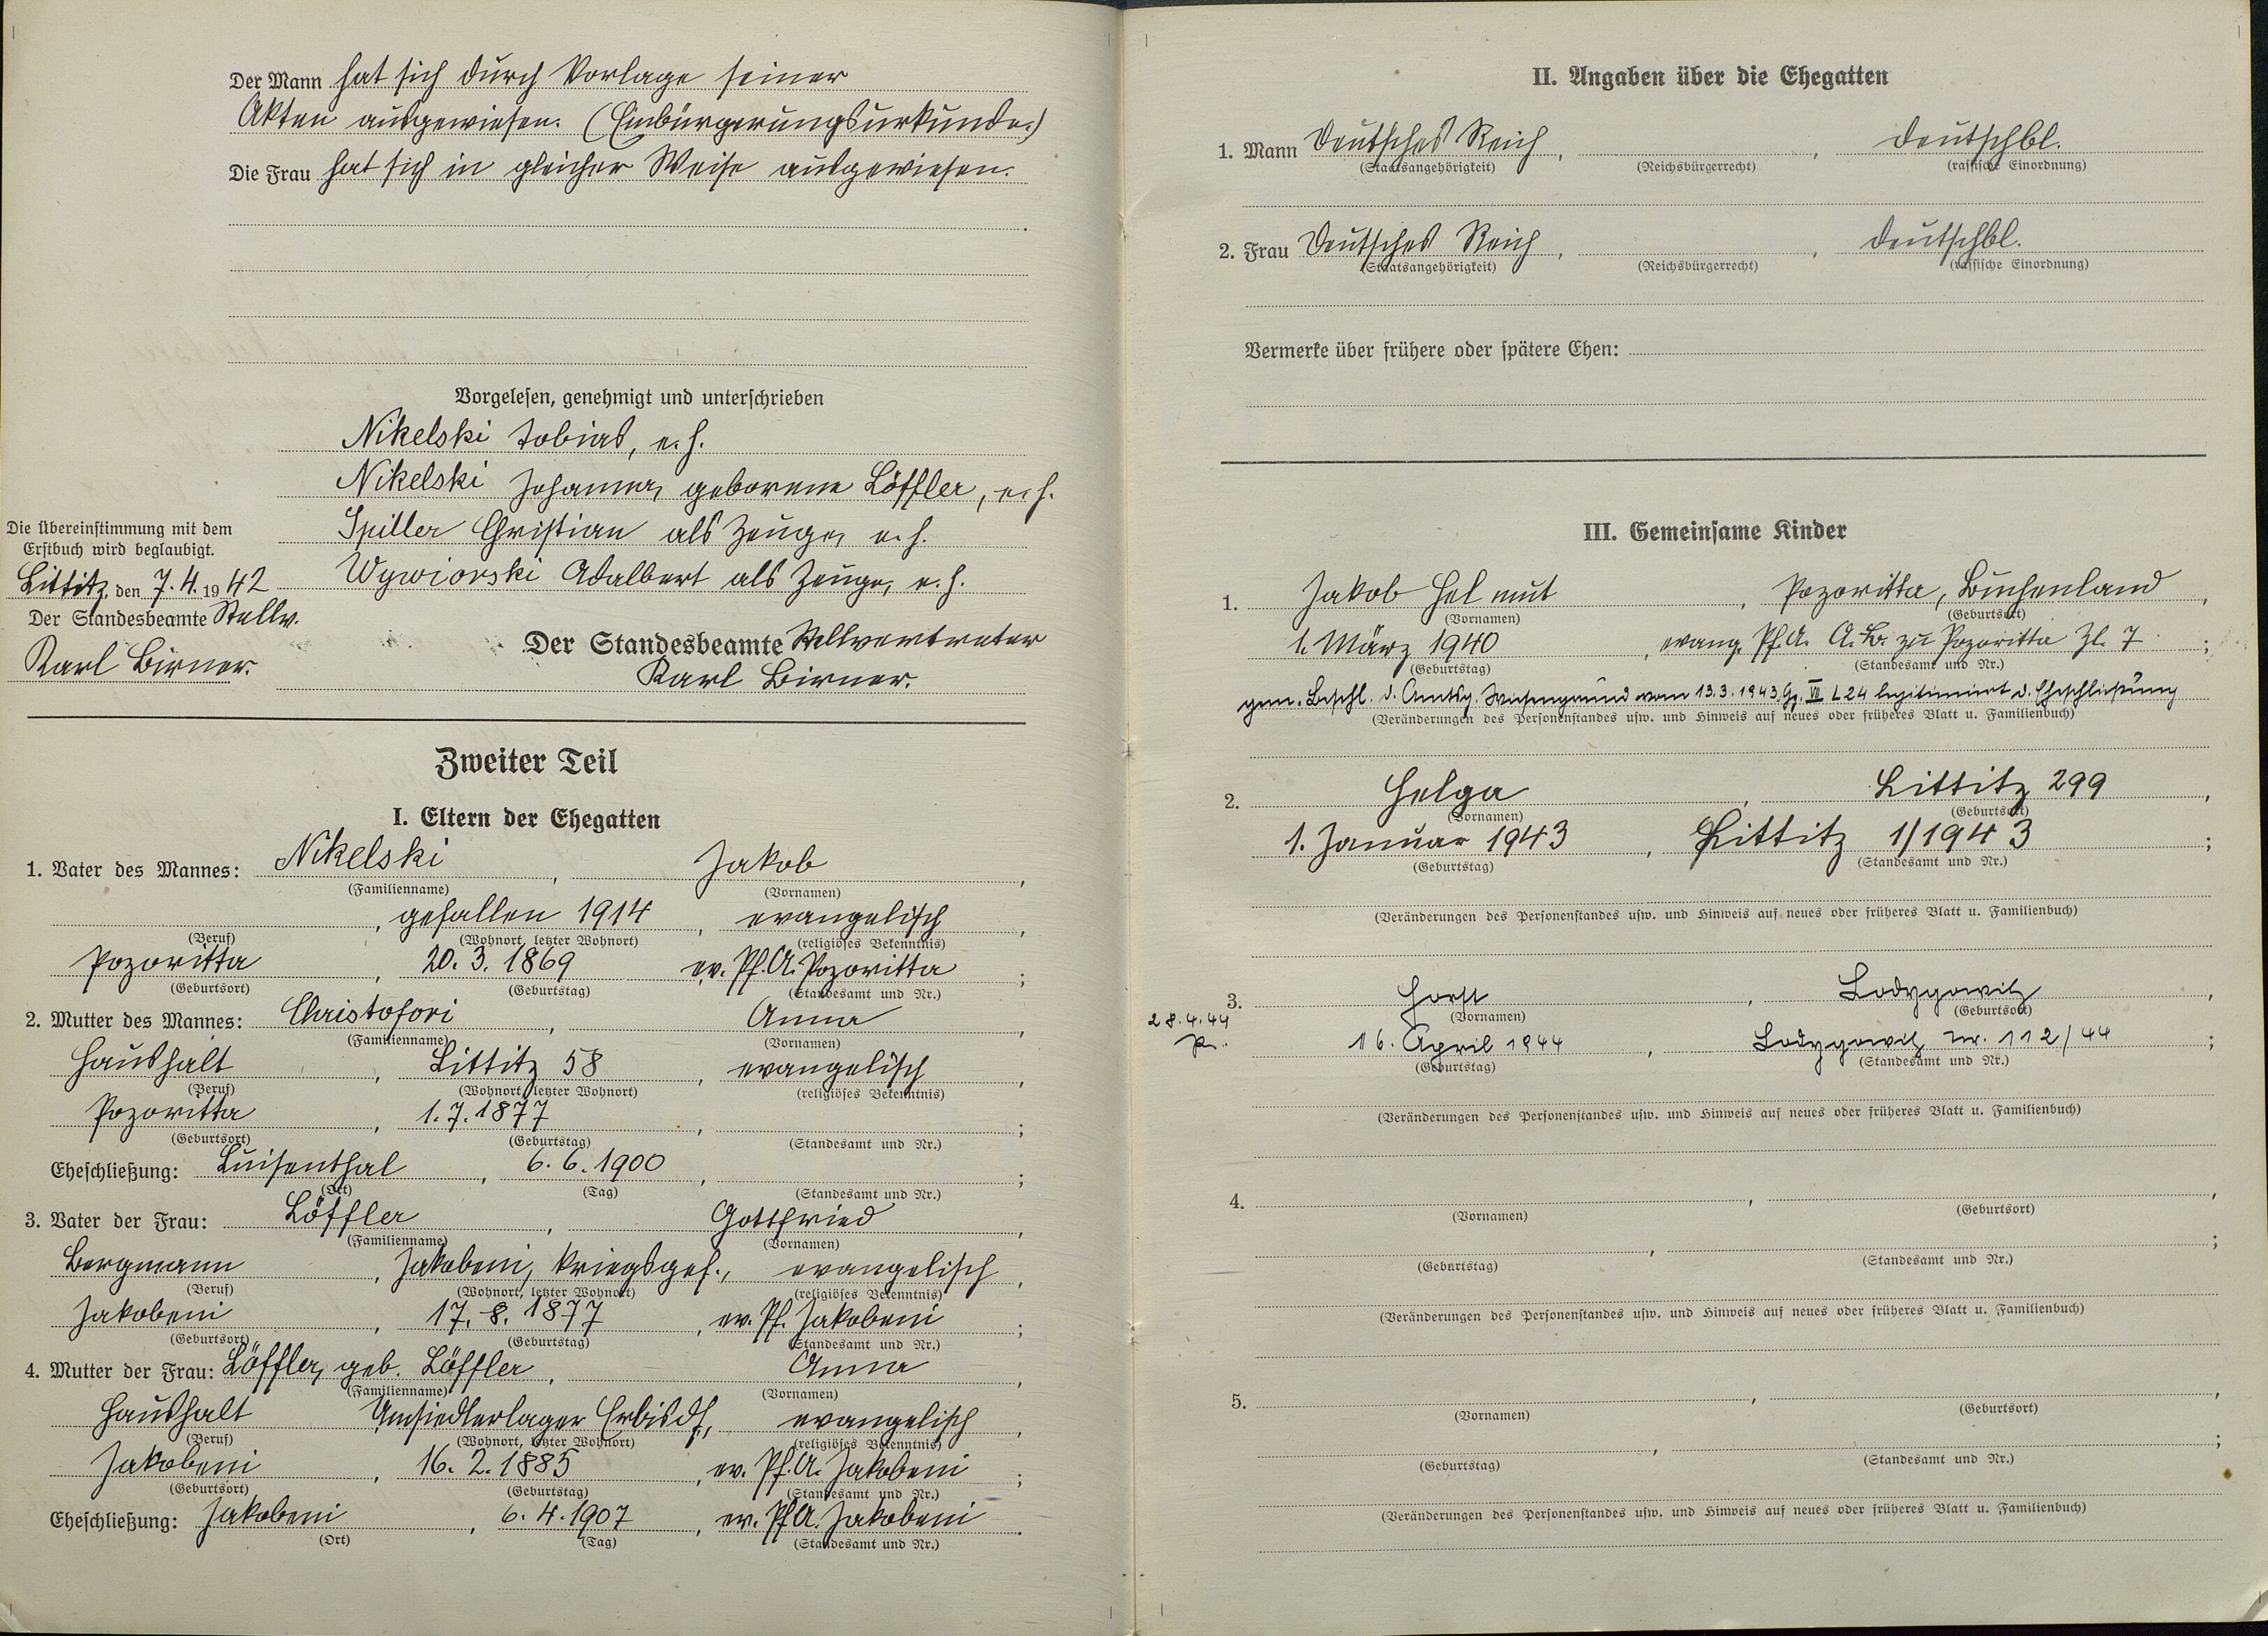 Der Mann hat sich durch Vorlage seiner
Akten ausgewiesen. (Einbürgerungsurkunde.)
Die Frau hat sich in gleicher Weise ausgewiesen.
Vorgelesen, genehmigt und unterschrieben
Nikelski Tobias, e.h.
Nikelski Johanna, geborene Löffler, e.h.
Spiller Christian als Zeuge, e.h.
Wywiorski Adalbert als Zeuge, e.h.
Die Übereinstimmung mit dem
Erstbuch wird beglaubigt.
Littitz, den 7.4.1942
Der Standesbeamte Stellv.
Karl Birner.
Der Standesbeamte Stellvertreter
Karl Birner.
Zweiter Teil
I. Eltern der Ehegatten
1. Vater des Mannes: Nikelski, Jakob,
(Familienname) (Vornamen)
, gefallen 1914, evangelisch,
(Beruf) (Wohnort, letzter Wohnort) (religiöses Bekenntnis)
Pozoritta, 20.3.1869 ev. Pf.A. Pozoritta;
(Geburtsort) (Geburtstag) (Standesamt und Nr.)
2. Mutter des Mannes: Christofori, Anna,
(Familienname) (Vornamen)
Haushalt, Littitz 58, evangelisch,
(Beruf) (Wohnort, letzter Wohnort) (religiöses Bekenntnis)
Pozoritta, 1.7.1877, ;
(Geburtsort) (Geburtstag) (Standesamt und Nr.)
Eheschließung: Luisenthal, 6.6.1900, ;
(Ort) (Tag) (Standesamt und Nr.)
3. Vater der Frau: Löffler, Gottfried,
(Familienname) (Vornamen)
Bergmann, Jakobeni, kriegsgef., evangelisch,
(Beruf) (Wohnort, letzter Wohnort) (religiöses Bekenntnis)
Jakobeni, 17.8.1877, ev. Pf. Jakobeni;
(Geburtsort) (Geburtstag) (Standesamt und Nr.)
4. Mutter der Frau: Löffler, geb. Löffler, Anna,
(Familienname) (Vornamen)
Haushalt, Umsiedlerlager Erbisdf., evangelisch,
(Beruf) (Wohnort, letzter Wohnort) (religiöses Bekenntnis)
Jakobeni, 16.2.1885, ev. Pf.A. Jakobeni;
(Geburtsort) (Geburtstag) (Standesamt und Nr.)
Eheschließung: Jakobeni, 6.4.1907, ev. Pf.A. Jakobeni.
(Ort) (Tag) (Standesamt und Nr.)
II. Angaben über die Ehegatten
1. Mann Deutsches Reich, , deutschbl.
(Staatsangehörigkeit) (Reichsbürgerrecht) (rassische Einordnung)
2. Frau Deutsches Reich, , deutschbl.
(Staatsangehörigkeit) (Reichsbürgerrecht) (rassische Einordnung)
Vermerke über frühere oder spätere Ehen:
III. Gemeinsame Kinder
1. Jakob Helmut, Pozoritta, Buchenland,
(Vornamen) (Geburtsort)
1. März 1940, evang. Pf.A. A.B. zu Pozoritta Zl. 7;
(Geburtstag) (Standesamt und Nr.)
gem. Beschl. d. Amtsg. Wiesengrund vom 13.3.1943 Gz. VII L 24 legitimiert d. Eheschließung
(Veränderungen des Personenstandes usw. und Hinweis auf neues oder früheres Blatt u. Familienbuch)
2. Helga, Littitz 299,
(Vornamen) (Geburtsort)
1. Januar 1943, Littitz 1/1943;
(Geburtstag) (Standesamt und Nr.)
(Veränderungen des Personenstandes usw. und Hinweis auf neues oder früheres Blatt u. Familienbuch)
3. Horst, Lodygowitz,
(Vornamen) (Geburtsort)
28.4.44
16. April 1944, Lodygowitz Nr. 112/44;
(Geburtstag) (Standesamt und Nr.)
(Veränderungen des Personenstandes usw. und Hinweis auf neues oder früheres Blatt u. Familienbuch)
4. , ,
(Vornamen) (Geburtsort)
, ;
(Geburtstag) (Standesamt und Nr.)
(Veränderungen des Personenstandes usw. und Hinweis auf neues oder früheres Blatt u. Familienbuch)
5. , ,
(Vornamen) (Geburtsort)
, ;
(Geburtstag) (Standesamt und Nr.)
(Veränderungen des Personenstandes usw. und Hinweis auf neues oder früheres Blatt u. Familienbuch)